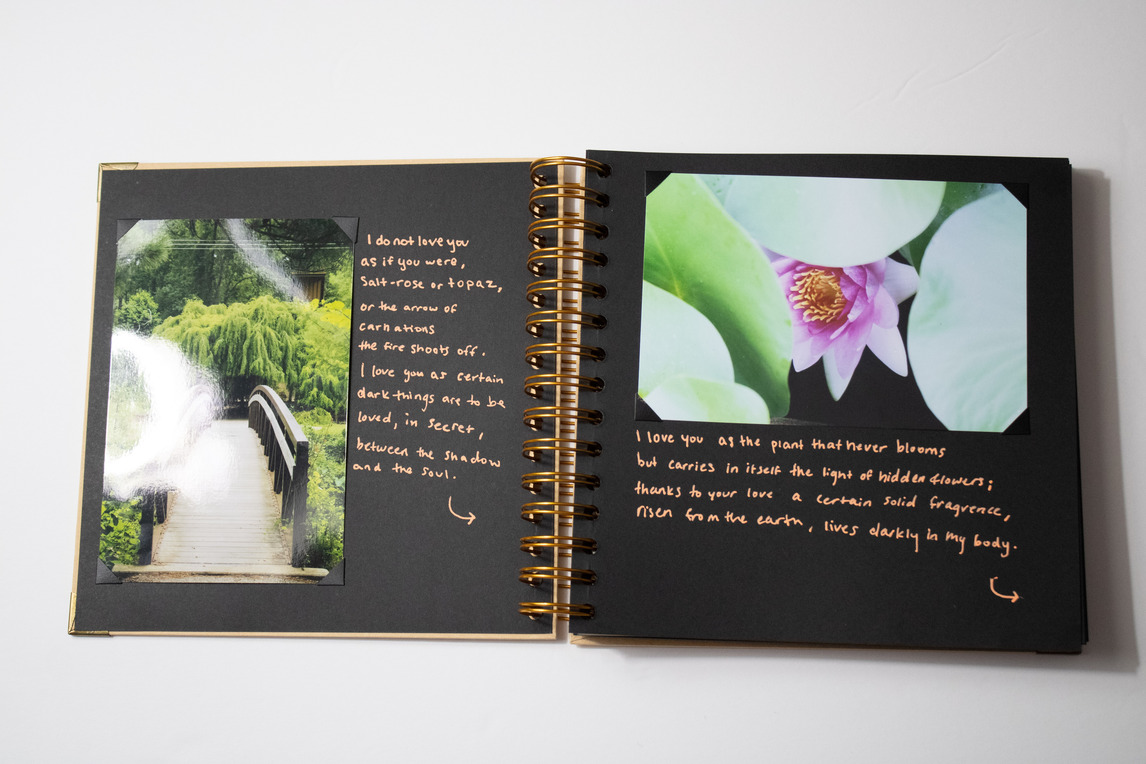 I do not love you
as if you were,
Salt-rose or topaz,
or the arrow of
carnations
the fire shoots off.
I love you as certain
dark things are to be
loved, in secret,
between the shadow
and the soul.
I love you as the plant that never blooms
but carries in itself the light of hidden flowers;
thanks to your love a certain solid fragrence,
risen from the earth, lives darkly in my body.